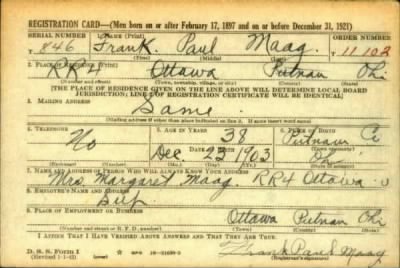 REGISTRATION CARD—(Men born on or after February 17, 1897 and on or before December 31, 1921)
SERIAL NUMBER 1. NAME (Print) ORDER NUMBER
846 Frank. Paul Maag. 11102
(First) (Middle) (Last)
2. PLACE OF RESIDENCE (Print)
RR4 Ottawa Putnam Ohi
(Number and street) (Town, township, village, or city) (County) (State)
[THE PLACE OF RESIDENCE GIVEN ON THE LINE ABOVE WILL DETERMINE LOCAL BOARD
JURISDICTION; LINE 2 OF REGISTRATION CERTIFICATE WILL BE IDENTICAL]
3. MAILING ADDRESS
Same.
[Mailing address if other than place indicated on line 2. If same insert word same]
4. TELEPHONE 5. AGE IN YEARS 6. PLACE OF BIRTH
No 38 Putnam Co
DATE OF BIRTH (Town or county)
Dec. 23 1903 Oh
(Exchange) (Number) (Mo.) (Day) (Yr.) (State or country)
7. NAME AND ADDRESS OF PERSON WHO WILL ALWAYS KNOW YOUR ADDRESS
Mrs. Margaret Maag. RR4 Ottawa O
8. EMPLOYER'S NAME AND ADDRESS
Self
9. PLACE OF EMPLOYMENT OR BUSINESS
Ottawa Putnam Ohi
(Number and street or R. F. D. number) (Town) (County) (State)
I AFFIRM THAT I HAVE VERIFIED ABOVE ANSWERS AND THAT THEY ARE TRUE.
D. S. S. Form 1 GPO 16—21630-2 Frank Paul Maag
(Revised 1-1-42) (over)